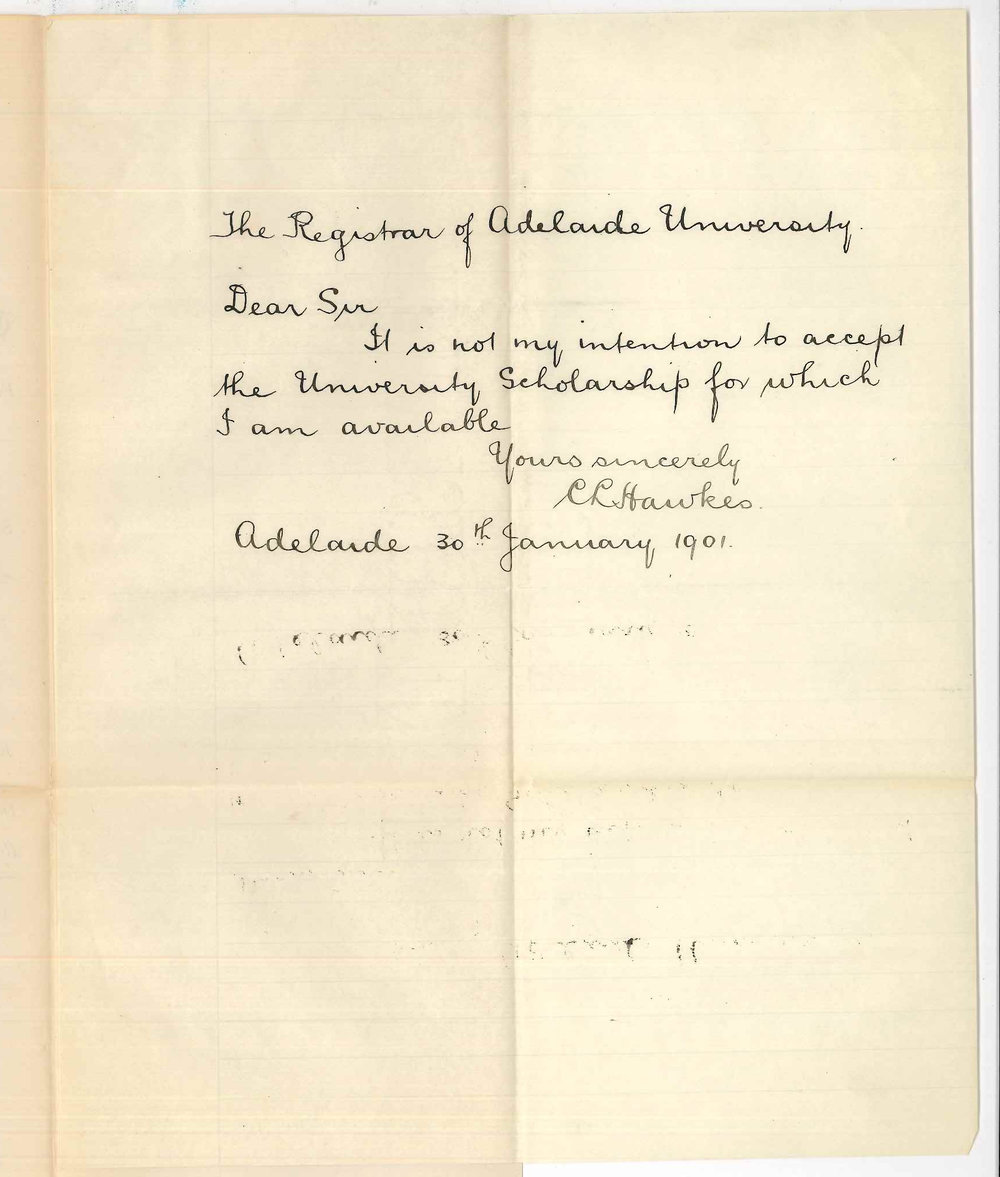 The Registrar of Adelaide University.
Dear Sir
It is not my intention to accept
the University Scholarship for which
I am available
Yours sincerely
C L Hawkes.
Adelaide 30th January 1901.